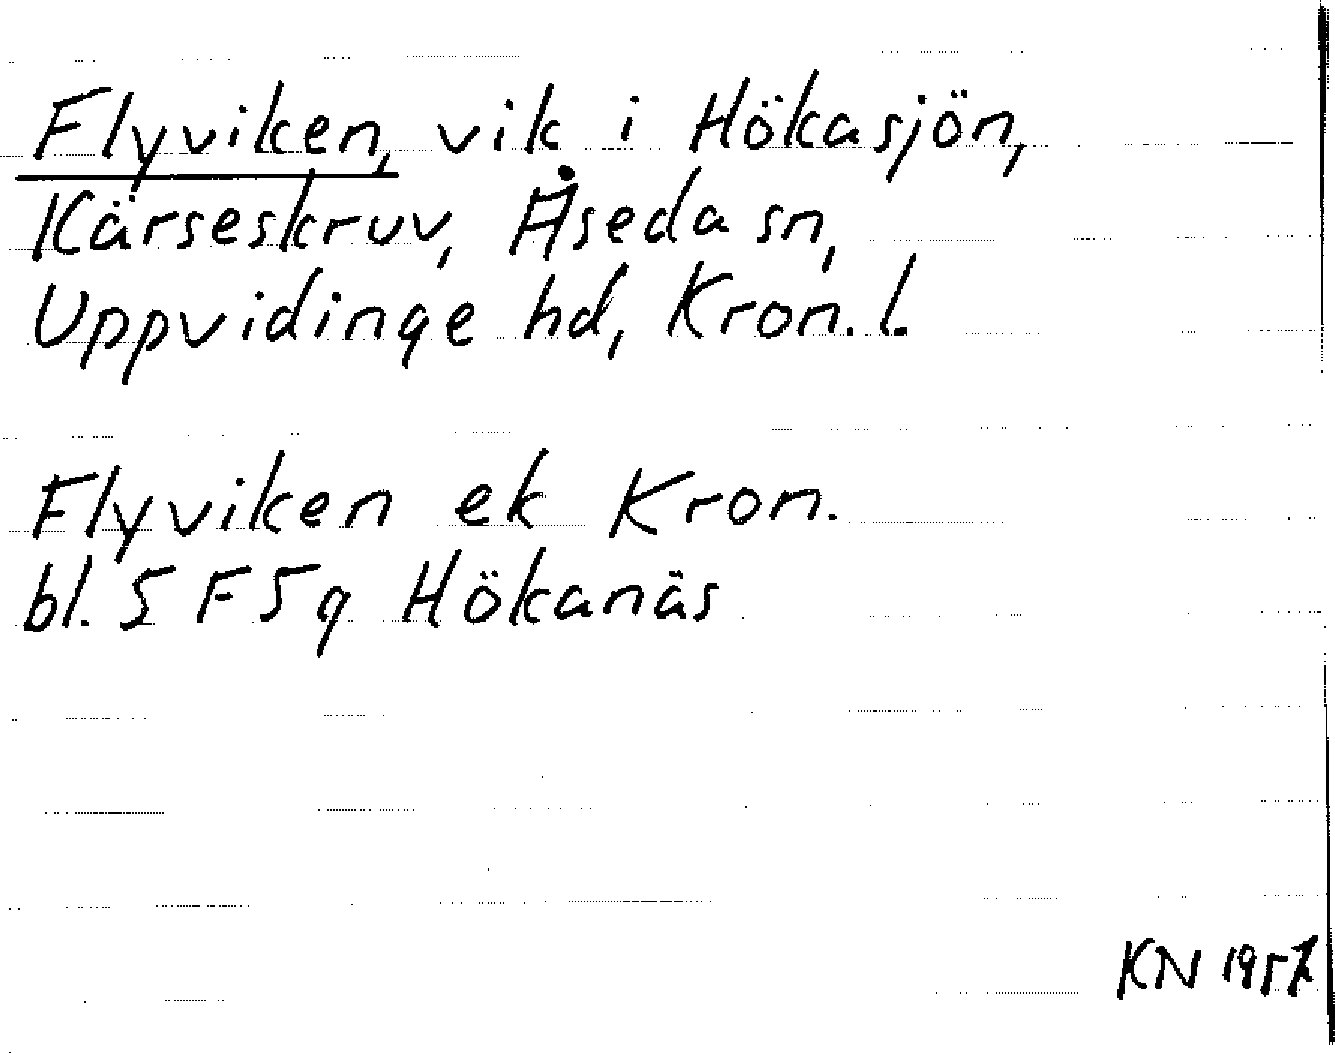 Flyviken, vik i Hökasjön,
Kärseskruv, Åseda sn,
Uppvidinge hd, Kron. l.
Flyviken ek Kron.
bl. 5 F 5 g Hökanäs
KN 1957